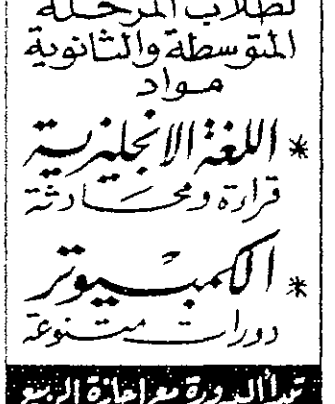 لطلاب المرحلة
المتوسطة والثانوية
مواد
* اللغة الإنجليزية
قراءة ومحادثة
* الكمبيوتر
دورات متنوعة
تبدأ الدورة مع إجازة الربيع